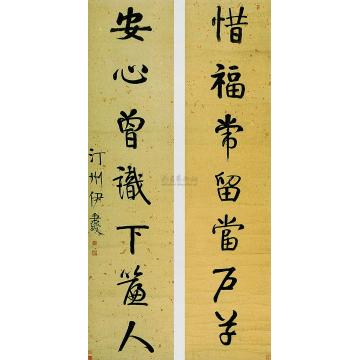 惜福常留當戶草
安心曾識下簾人
汀州伊